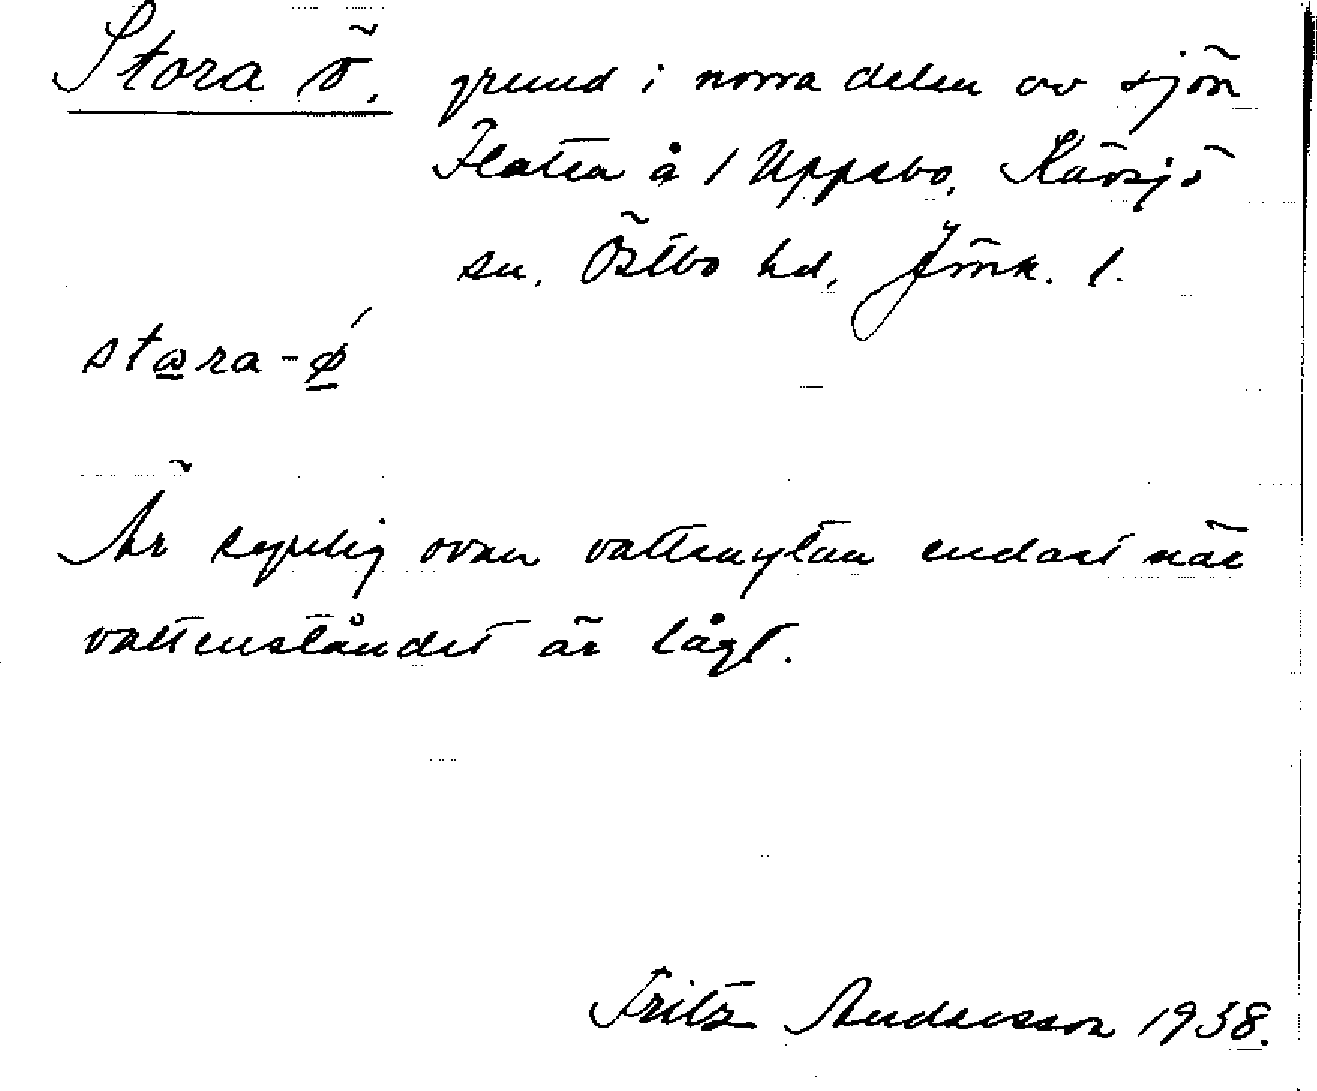 Stora ö. grund i norra delen av sjön
Flaten å 1 Uppebo, Kävsjö
sn. Östbo hd, Jönk. l.
stora-ø´
Är synlig ovan vattenytan endast när
vattenståndet är lågt.
Fritz Andersson 1938.